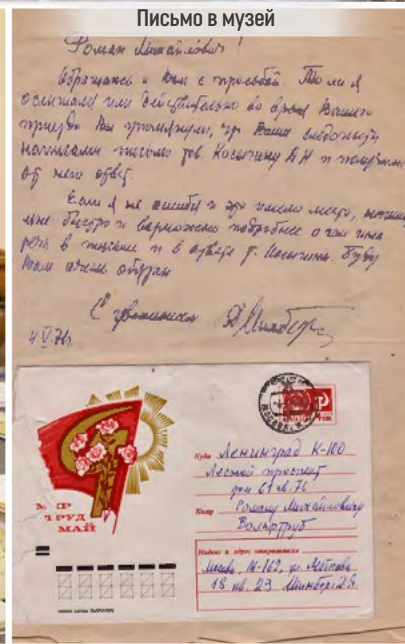 Письмо в музей
Роман Михайлович!
Обращаюсь к Вам с просьбой. То ли я
ослышался или действительно во время Вашего
приезда Вы упомянули, что Ваши следопыты
написали письмо тов. Косыгину А Н и получили
от него ответ.
Если я не ошибся и это имело место,
мне быстро и возможно подробнее о чем шла
речь в письме и в ответе т. Косыгина. Буду
Вам очень обязан
С уважением
4 V 76г.
МИР
ТРУД
МАЙ
Куда Ленинград К-100
Лесной проспект
дом 61 кв. 76
Кому Роману Михайловичу
Индекс и адрес отправителя
Москва,
18 кв. 23